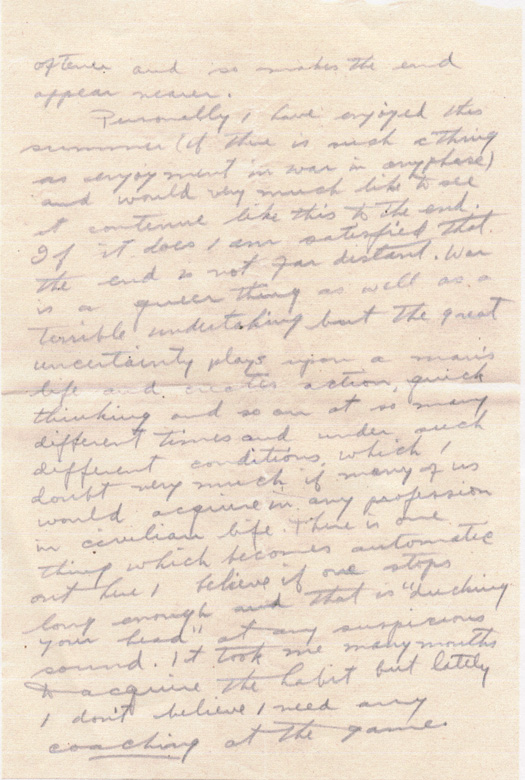 oftener and so makes the end
appear nearer.
Personally I have enjoyed this
summer (if there is such a thing
as enjoyment in war in any phase)
and would very much like to see
it continue like this to the end.
If it does I am satisfied that
the end is not far distant. War
is a queer thing as well as a
terrible undertaking but the great
uncertainty plays upon a man's
life and creates action, quick
thinking and so on at so many
different times and under such
different conditions, which I
doubt very much if many of us
would acquire in any profession
in civilian life. There is one
thing which becomes automatic
out here I believe if one stops
long enough and that is "ducking
your head" at any suspicious
sound. It took me many months
to acquire the habit but lately
I don't believe I need any
coaching at the game.